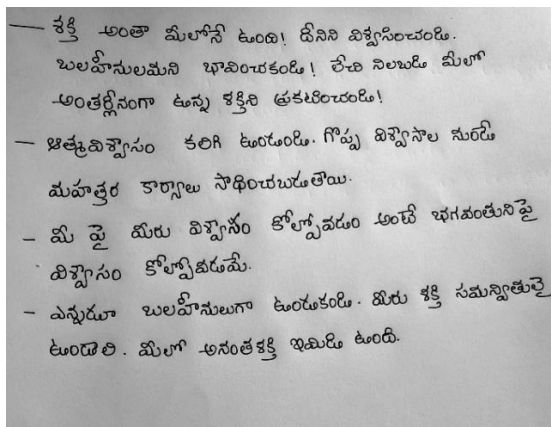 — శక్తి అంతా మీలోనే ఉంది! దీనిని విశ్వసించండి.
బలహీనులమని భావించకండి! లేచి నిలబడి మీలో
అంతర్లీనంగా ఉన్న శక్తిని ప్రకటించండి!
— ఆత్మవిశ్వాసం కలిగి ఉండండి. గొప్ప విశ్వాసాల నుండే
మహత్తర కార్యాలు సాధించబడుతాయి.
– మీ పై మీరు విశ్వాసం కోల్పోవడం అంటే భగవంతునిపై
విశ్వాసం కోల్పోవడమే.
– ఎన్నడూ బలహీనులుగా ఉండుకండి. మీరు శక్తి సమన్వితులై
ఉండాలి. మీలో అనంతశక్తి ఇమిడి ఉంది.